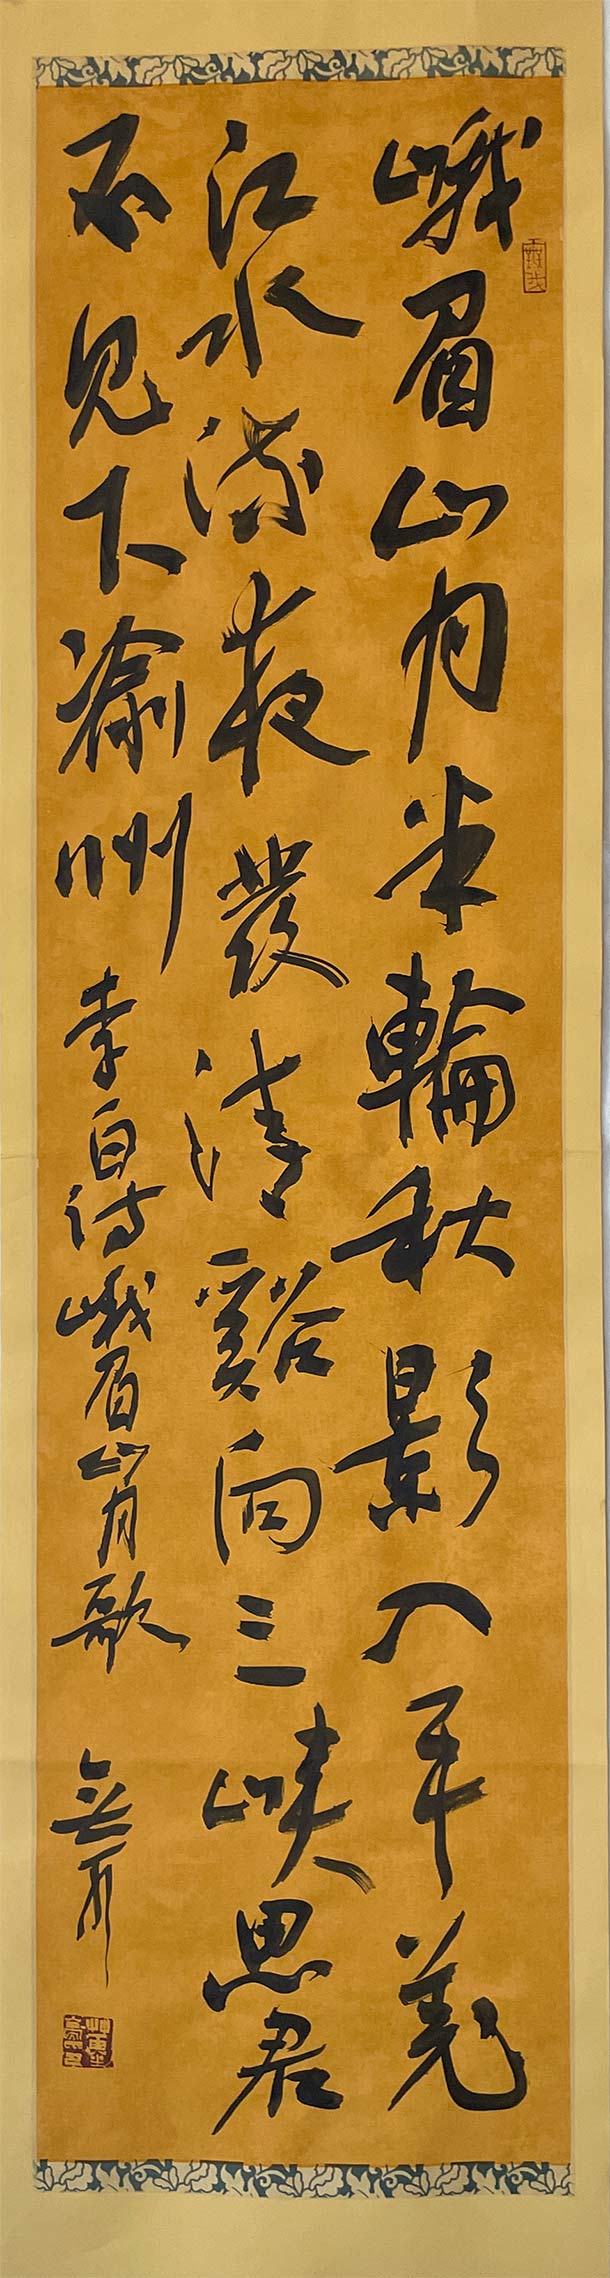 峨眉山月半輪秋影入平羌
江水流夜發清谿向三峽思君
不見下渝州 李白诗峨眉山月歌